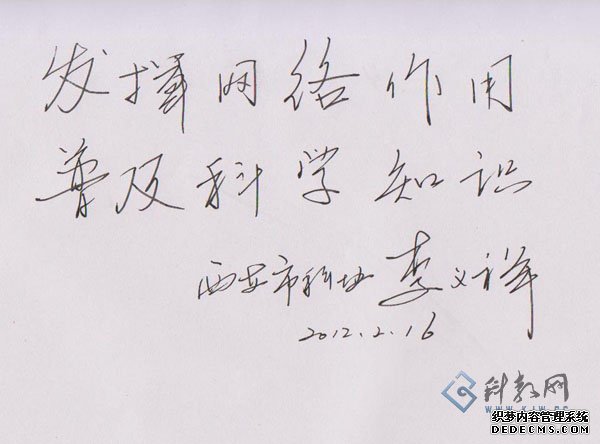 发挥网络作用
普及科学知识
西安市科协 李义祥
2012.2.16
科教网
织梦内容管理系统
DEDECMS.COM